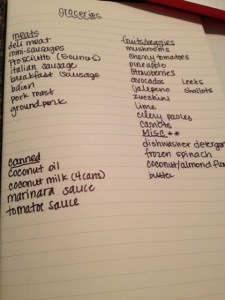 groceries
meats
deli meat
mini-sausages
Prosciutto (5 ounces)
italian sausage
breakfast sausage
bacon
pork roast
ground pork
canned
coconut oil
coconut milk (4 cans)
marinara sauce
tomator sauce
fruits/veggies
mushrooms
cherry tomatoes
pineapple
strawberries
avocados leeks
jalepeno shallots
zucchini
lime
celery
carrots
misc **
dishwasher deterge
frozen spinach
coconut/almond flo
butter